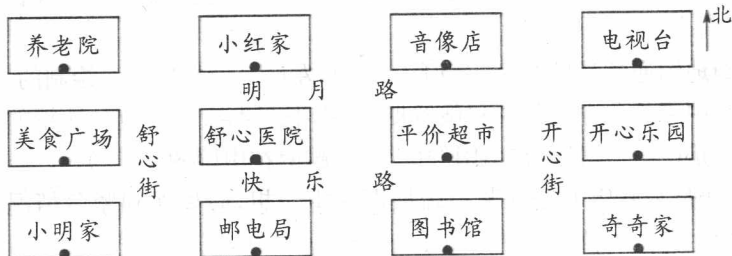 北
养老院 小红家 音像店 电视台
明月路
美食广场 舒心街 舒心医院 平价超市 开心街 开心乐园
快乐路
小明家 邮电局 图书馆 奇奇家